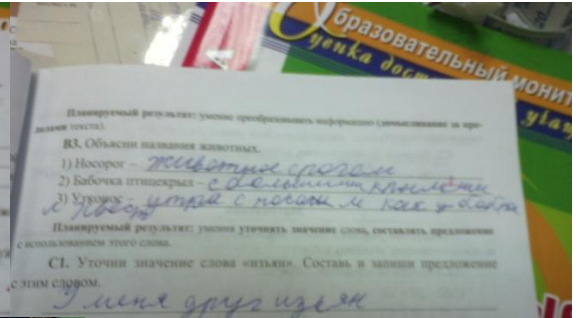 Образовательный монит
Оценка дост
учащ
Планируемый результат: умение преобразовывать информацию (домысливание за пре-
делами текста).
В3. Объясни названия животных.
1) Носорог – животное с рогом
2) Бабочка птицекрыл – с большими крылами
3) Утконос – утра с носом как у бобра
и хвост
Планируемый результат: умения уточнять значение слова, составлять предложение
с использованием этого слова.
С1. Уточни значение слова «изъян». Составь и запиши предложение
с этим словом.
У меня друг изъян